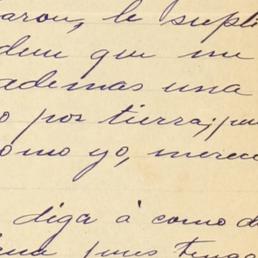 aron, le supli
den que me
ademas una
o por tierra; pu
como yo, merec
diga á como d
pues tenga